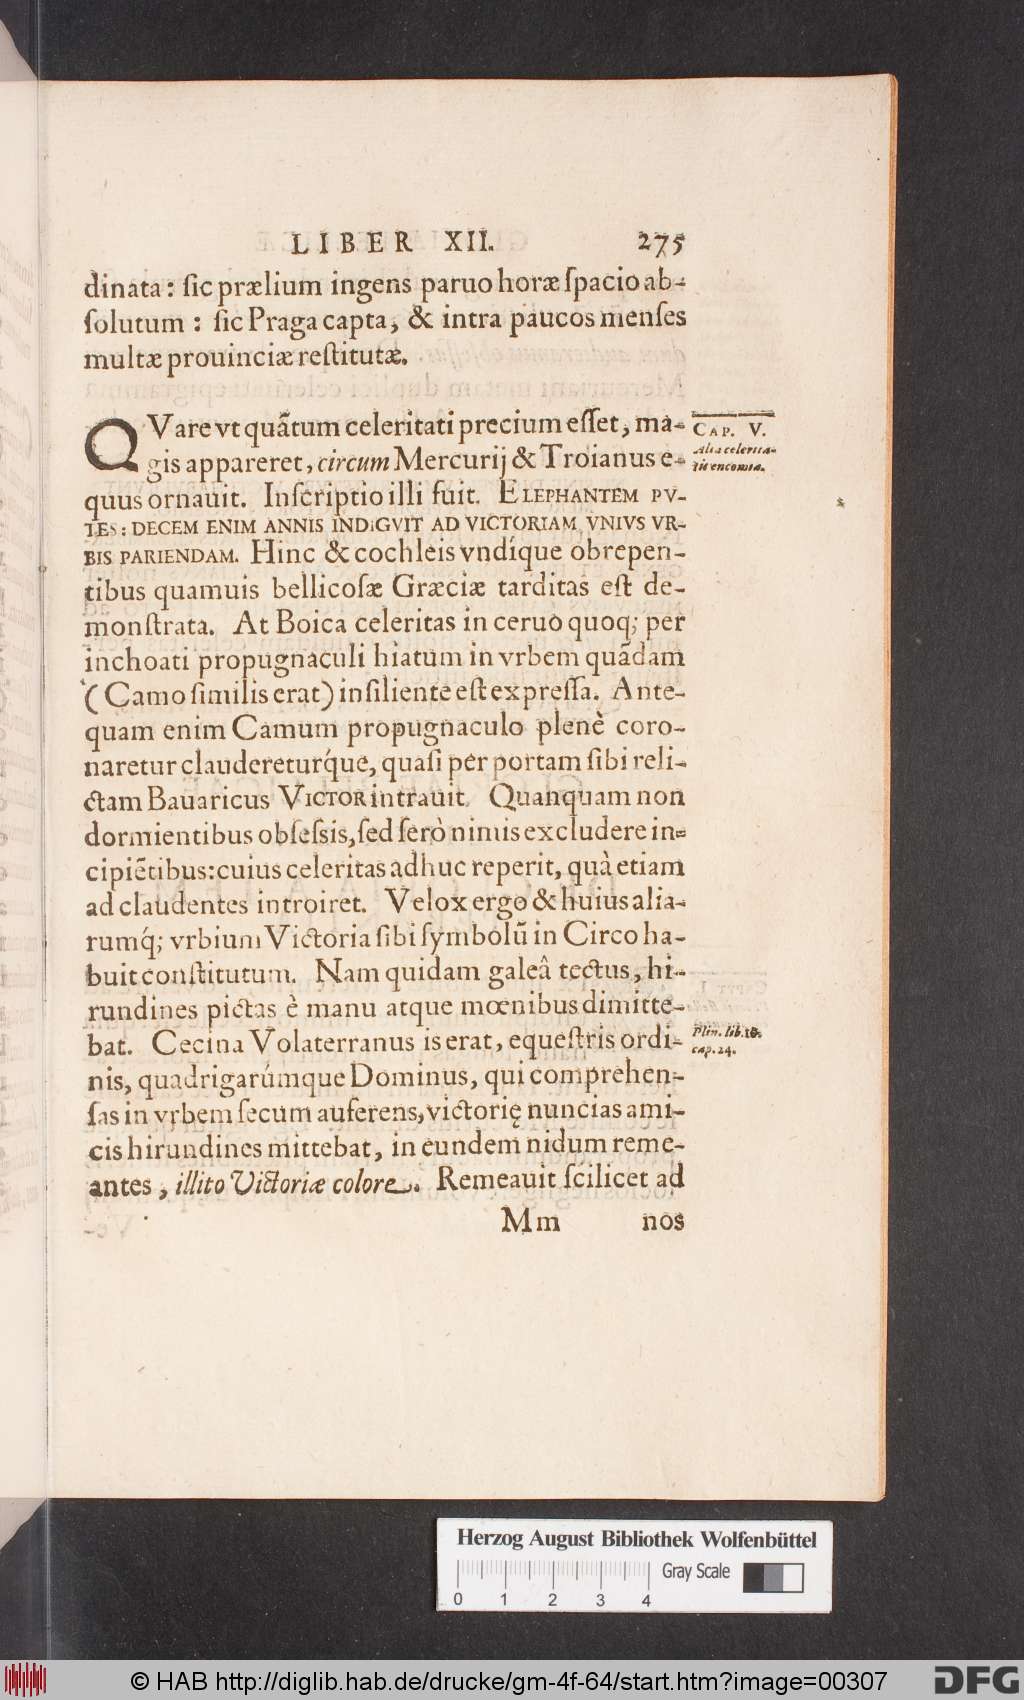 LIBER XII. 275
dinata: ſic prælium ingens paruo horæ ſpacio ab-
ſolutum: ſic Praga capta, & intra paucos menſes
multæ prouinciæ reſtitutæ.
QVare vt quãtum celeritati precium eſſet, ma-
gis appareret, circum Mercurij & Troianus e-
quus ornauit. Inſcriptio illi fuit. ELEPHANTEM PV-
TES: DECEM ENIM ANNIS INDIGVIT AD VICTORIAM VNIVS VR-
BIS PARIENDAM. Hinc & cochleis vndíque obrepen-
tibus quamuis bellicoſæ Græciæ tarditas eſt de-
monſtrata. At Boica celeritas in ceruo quoq; per
inchoati propugnaculi hiatum in vrbem quãdam
(Camo ſimilis erat) inſiliente eſt expreſſa. Ante-
quam enim Camum propugnaculo plenè coro-
naretur claudereturq́ue, quaſi per portam ſibi reli-
ctam Bauaricus VICTOR intrauit. Quanquam non
dormientibus obſeſsis, ſed ſerò nimis excludere in-
cipiẽtibus: cuius celeritas adhuc reperit, quà etiam
ad claudentes introiret. Velox ergo & huius alia-
rumq́; vrbium Victoria ſibi ſymbolũ in Circo ha-
buit conſtitutum. Nam quidam galeâ tectus, hi-
rundines pictas è manu atque mœnibus dimitte-
bat. Cecina Volaterranus is erat, equeſtris ordi-
nis, quadrigarúmque Dominus, qui comprehen-
ſas in vrbem ſecum auferens, victorię nuncias ami-
cis hirundines mittebat, in eundem nidum reme-
antes, illito Victoriæ colore. Remeauit ſcilicet ad
Mm nos
CAP. V.
Alia celerita-
tis encomia.
Plin. lib. 10.
cap. 24.
Herzog August Bibliothek Wolfenbüttel
Gray Scale
0 1 2 3 4
© HAB http://diglib.hab.de/drucke/gm-4f-64/start.htm?image=00307
DFG